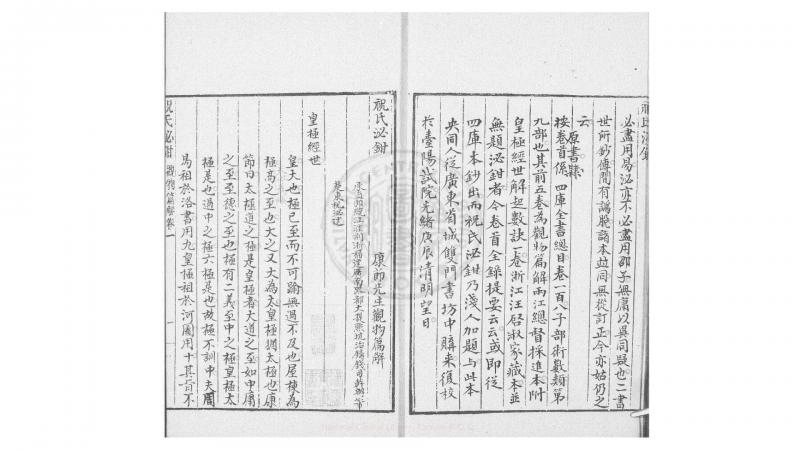 祝氏泌鉗
必盡用易泌亦不必盡用邵子無庸以異同疑也二書
世所鈔傳間有譌脫諸本竝同無從訂正今亦姑仍之
云原書錄
按卷首係 四庫全書總目卷一百八子部術數類第
九部也其前五卷為觀物篇解兩江總督採進本附
皇極經世解起數訣一卷浙江汪啓淑家藏本並
無題泌鉗者今卷首全錄提要云云或即從
四庫本鈔出而祝氏泌鉗乃淺人加題與此本
央同人從廣東省城雙門書坊中購來復校
於臺陽試院光緒庚辰清明望日
祝氏泌鉗 康節先生觀物篇解
皇極經世
皇大也極已至而不可踰無過不及也屋棟為
極高之至也大之又大為太皇極猶太極也康
節曰太極道之極是皇極者大道之至如中庸
之至至德之至也極有二義至中之極皇極太
極是也過中之極六極是也故極不訓中夫周
馬祖於洛書用九皇極祖於河圖用十其旨不
祝氏泌鉗 觀物篇解卷一 一